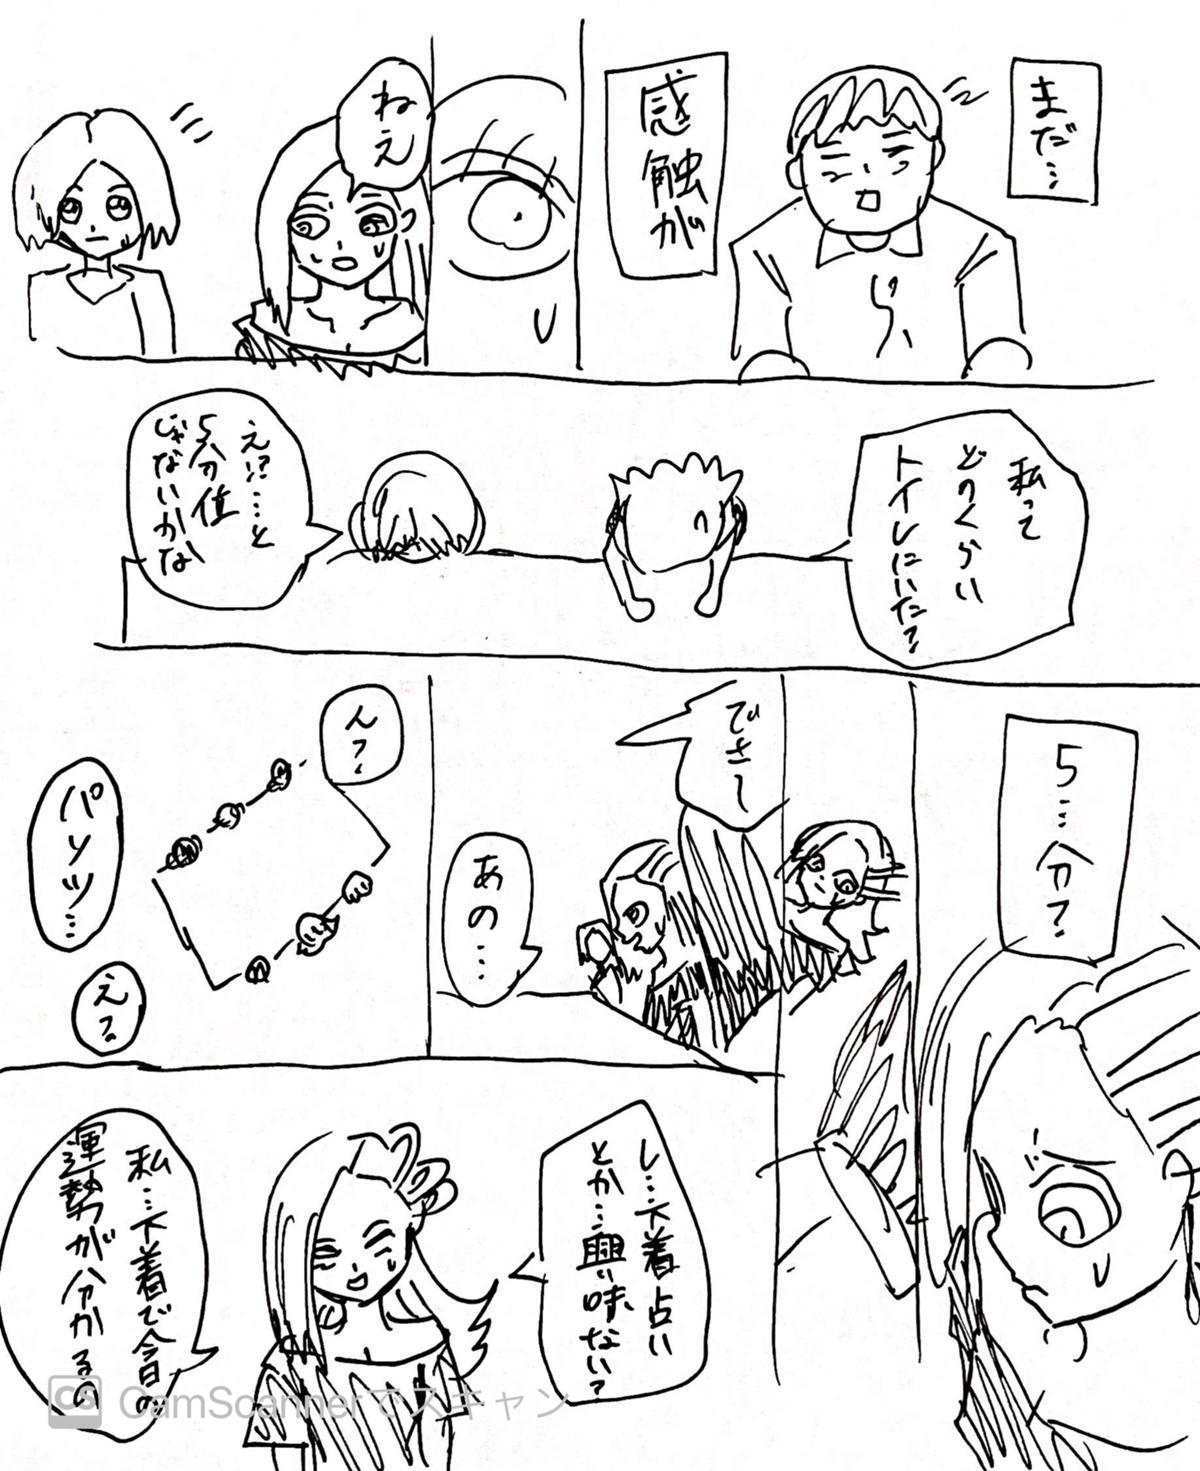 まだ…
感触が
ねえ
私って
どのくらい
トイレにいた?
え!?…と
5分位
じゃないかな
5…分?
でさー
あの…
ん?
パンツ…
え?
し…下着占い
とか…興い味ない?
私…下着で今日の
運勢が分かるの
CS CamScannerでスキャン